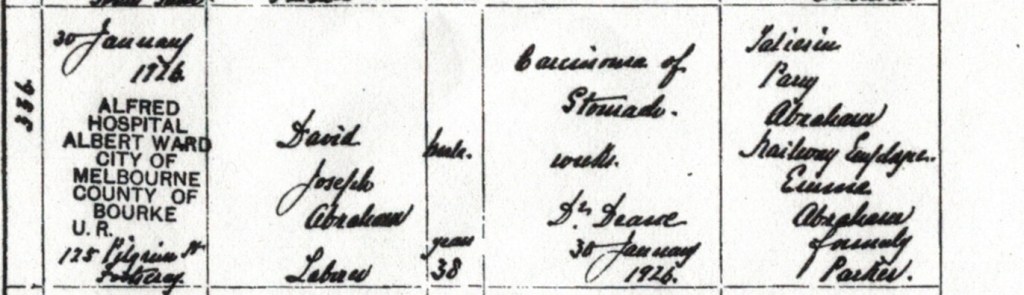 336
30 January
1926
ALFRED
HOSPITAL
ALBERT WARD
CITY OF
MELBOURNE
COUNTY OF
BOURKE
U. R.
125 Pilgrim St
Footscray.
David
Joseph
Abraham
Labourer
male.
years
38
Carcinoma of
Stomach.
weeks.
Dr
30 January
1926.
Parry
Abraham
Railway Employee.
Emma
Abraham
formerly
Parker.